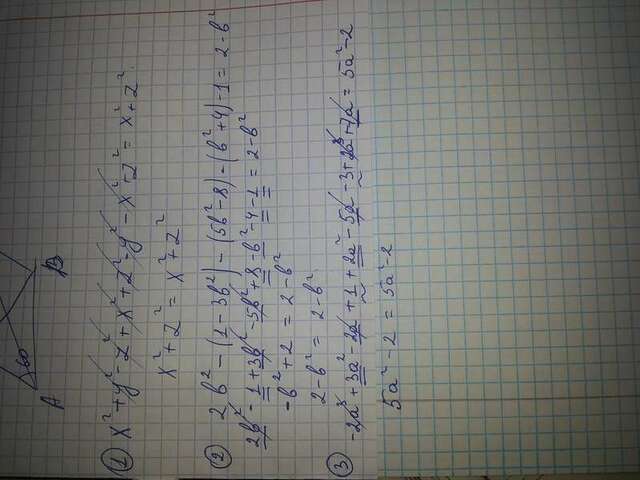 A 60 B
① x² + y² - z² + x² + z² - y² - x² + z² = x² + z²
x² + z² = x² + z²
② 2b² - (1 - 3b²) - (5b² - 8) - (b² + 4) - 1 = 2 - b²
2b² - 1 + 3b² - 5b² + 8 - b² - 4 - 1 = 2 - b²
-b² + 2 = 2 - b²
2 - b² = 2 - b²
③ -2a³ + 3a² - 2a + 1 + 2a² - 5a - 3 + 2a³ + 7a = 5a² - 2
5a² - 2 = 5a² - 2